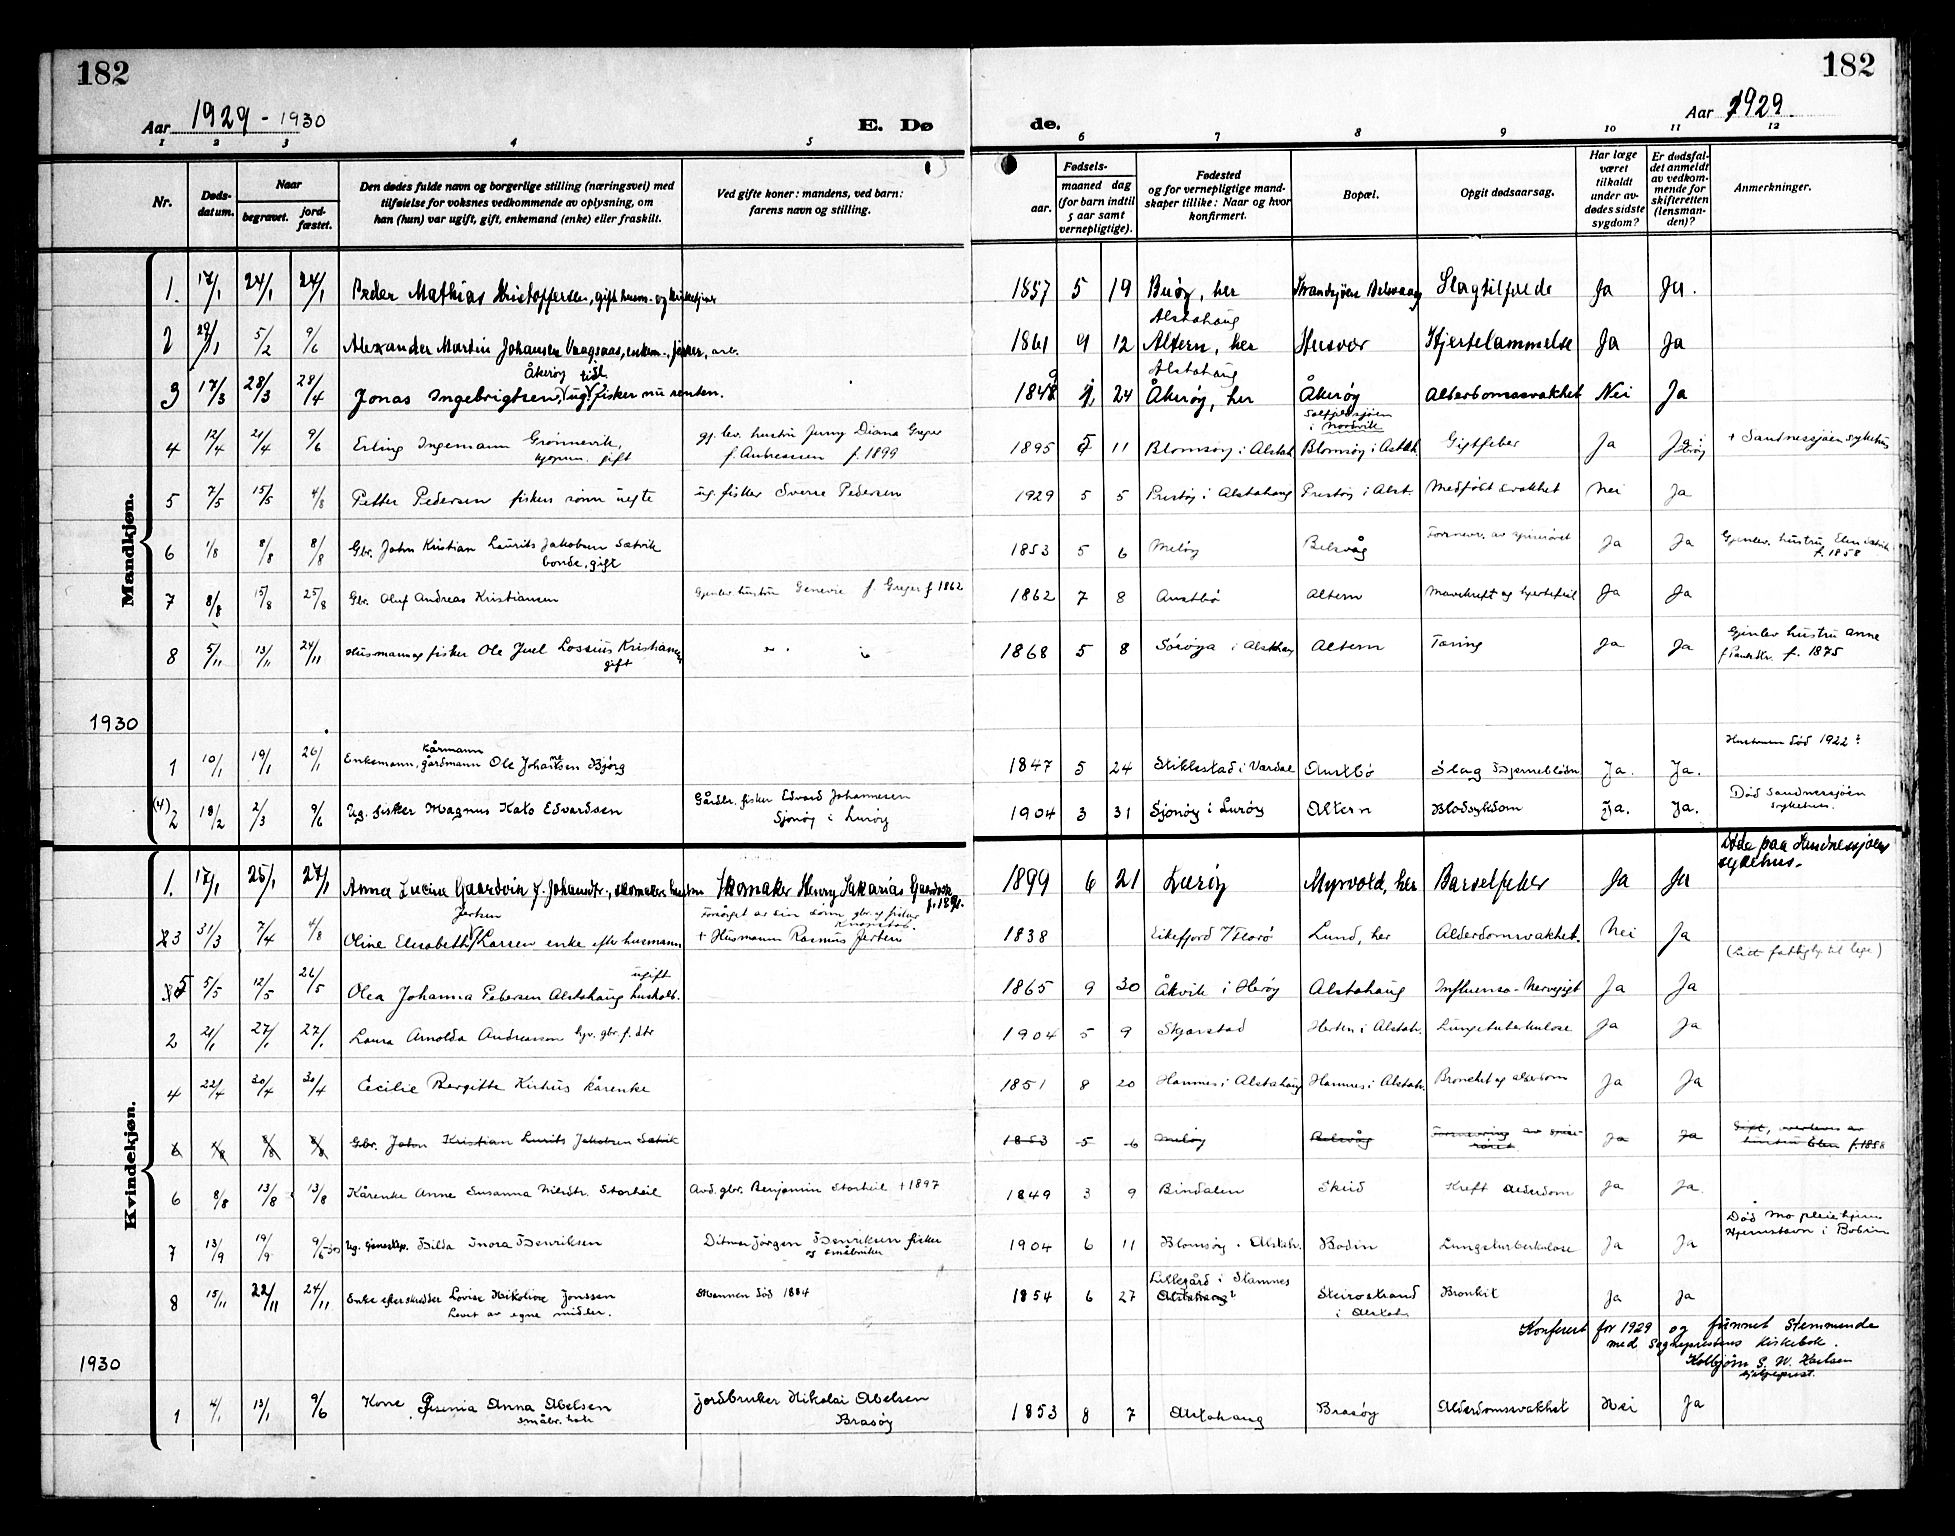 182
182
Aar 1929 - 1930
E. Dø
de.
Aar 1929.
1 2 3 4 5 6 7 8 9 10 11 12
Nr.
Døds-datum.
Naar
begravet.
jord-fæstet.
Den dødes fulde navn og borgerlige stilling (næringsvei) med
tilføielse for voksnes vedkommende av oplysning, om
han (hun) var ugift, gift, enkemand (enke) eller fraskilt.
Ved gifte koner: mandens, ved barn:
farens navn og stilling.
Fødsels-
aar.
maaned dag
(for barn indtil
5 aar samt
vernepligtige).
Fødested
og for vernepligtige mand-
skaper tillike: Naar og hvor
konfirmert.
Bopæl.
Opgit dødsaarsag.
Har læge
været
tilkaldt
under av-
dødes sidste
sygdom?
Er dødsfal-
det anmeldt
av vedkom-
mende for
skifteretten
(lensman-
den)?
Anmerkninger.
Mandkjøn.
1. 17/1 24/1 24/1 Peder Mathias Kristoffersen, gift husm. og 1857 5 19 Buøy, her Slagtilfælde Ja Ja.
Alstahaug
2 29/1 5/2 9/6 Alexander Martin Johansen Vaagsaas, enkem., fisker, arb. 1861 9 12 Altern, her Husvær Hjertelammelse Ja Ja
Åkerøy tidl Alstahaug
3 17/3 28/3 28/4 Jonas Ingebrigtsen, ug. fisker nu renten. 1848 9 24 Åkerøy, her Åkerøy Alderdomssvakhet Nei Ja
i Nordvik
4 12/4 21/4 9/6 Erling Ingemann Grønnevik, gj. lev. hustru Jenny Diana Greger 1895 5 11 Blomsøy i Alstah. Blomsøy i Alstah. Gigtfeber Ja Ja i Herøy + Sandnessjøen sykehus
gift f. Andreassen f. 1899
5 7/5 15/5 4/8 Petter Pedersen fiskers sønn uegte ug. fisker Sverre Pedersen 1929 5 5 Prestøy i Alstahaug Prestøy i Alst. Medfødt svakhet Nei Ja
6 1/8 8/8 8/8 Gbr. John Kristian Laurits Jakobsen Sætvik 1853 5 6 Meløy Belsvåg Forsnevr. av spiserøret Ja Ja Gjenlev. hustru Elen Sætvik
bonde, gift f. 1858
7 8/8 15/8 25/8 Gbr. Oluf Andreas Kristiansen Gjenlev. hustru Genevie f. Greger f 1862 1862 7 8 Austbø Altern Mavekreft og hjertefeil Ja Ja
8 5/11 13/11 24/11 Husmann og fisker Ole Juel Lossius Kristiansen 1868 5 8 Sørøya i Alstahaug Altern Tæring Ja Ja Gjenlev hustru Anne
gift f. 1875
1930
Kårmann Hustruen død 1922?
1 10/1 19/1 26/1 Enkemann, gårdmann Ole Johan Bjørg 1847 5 24 Stiklestad i Verdal Austbø Slag Hjerneblødn. Ja. Ja.
(4) 2 18/2 2/3 9/6 Ug. fisker Magnus Kato Edvardsen Gårdbr. fisker Edvard Johannesen 1904 3 31 Sjonøy i Lurøy Altern Blodsykdom Ja. Ja. Død Sandnessjøen
Sjonøy i Lurøy sykehus.
Kvindekjøn.
Døde paa Sandnessjøen
sykehus.
1. 17/1 25/1 27/1 Anna Lucina Gaardvik f. Johansdtr., skomaker hustru Skomaker Henry Sakarias Gaardvik 1899 6 21 Lurøy Myrvold, her Barselfeber Ja Ja
Jertsen Forsørget av sin sønn gbr. og fisker
3 31/3 7/4 4/8 Oline Elisabeth Larsen enke efter husmann + Husmann Rasmus Jertsen 1838 Eikefjord / Florø Lund, her Alderdomsvakhet. Nei Ja
ugift
5 5/5 12/5 26/5 Olea Johanna Petersen Alstahaug husholt. 1865 9 30 Åkvik i Herøy Alstahaug Influensa - Nervegigt Ja Ja
2 21/1 27/1 27/1 Laura Arnolda Andreassen hjv. gbr. f. dtr 1904 5 9 Skjærstad i Alstah. Lungetuberkulose Ja Ja
4 22/4 30/4 30/4 Cecilie Bergitte Kirhus Kårenke 1851 8 20 Hamnes i Alstahaug Hamnes i Alstah. Bronchit og alderdom Ja Ja
6 1/8 8/8 8/8 Gbr. John Kristian Lurits Jakobsen Sætvik 1853 5 6 Meløy Belsvåg Forsnevring av spise- Ja Ja Gift, overleves av
røret hustru Elen f. 1858
6 8/8 13/8 13/8 Kårenke Anne Susanna Nilsdtr. Storheil Avd. gbr. Benjamin Storheil + 1897 1849 3 9 Bindalen Skeid Kreft Alderdom Ja Ja.
Død Mo pleiehjem
7 13/9 19/9 9/6-30 Ug. Hilda Inora Henriksen Ditmar Jørgen Henriksen fisker 1904 6 11 Blomsøy i Alstah. Bodin Lungetuberkulose Ja Ja Hjernstavn i Bodin
og småbruker
Lillegård i Stamnes
8 15/11 22/11 24/11 Enke efter skredder Lovise Nikoline Jonssen Mannen død 1884 1854 6 27 Alstahaug Steirostrand Bronkit Ja Ja
Levet av egne midler. i Alstah
Konferert for 1929 og funnet stemmende
med Sogneprestens Kirkebok.
Kolbjørn S. W. Karlsen
hjelpeprest.
1930
1 4/1 13/1 9/6 Kone Anna Abelsen jordbruker Nikolai Abelsen 1853 8 7 Alstahaug Brasøy Alderdomssvakhet Nei Ja
småbr. Brasøy